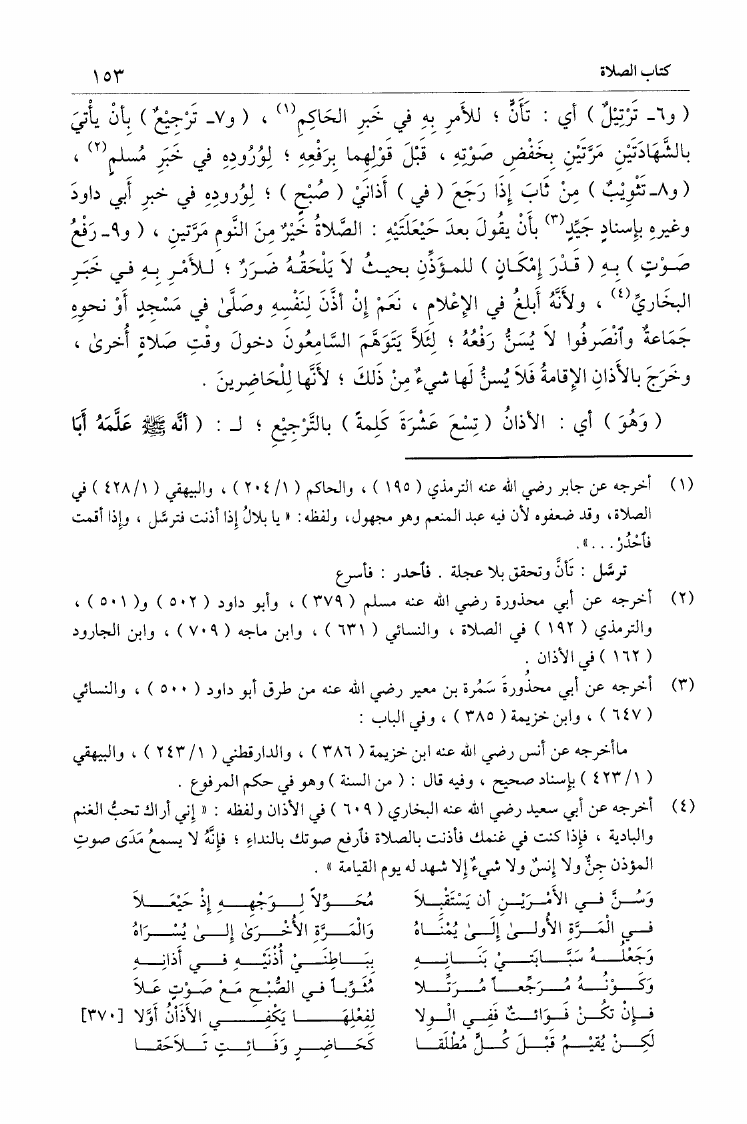 كتاب الصلاة ١٥٣
( و٦- تَرْتِيْلٌ ) أي : تَأَنٍّ ؛ للأمرِ بِهِ في خَبرِ الحَاكِمِ(١) ، ( و٧- تَرْجِيْعٌ ) بِأنْ يأْتيَ
بالشَّهادَتَيْنِ مَرَّتَيْنِ بِخَفْضِ صَوْتِهِ ، قَبْلَ قَوْلِهِما بِرَفْعِهِ ؛ لِوُرُودِهِ في خَبَرِ مُسلمٍ(٢) ،
( و٨- تَثْوِيْبٌ ) مِنْ ثَابَ إذَا رَجَعَ ( في ) أذَانَيْ ( صُبْحٍ ) ؛ لِوُرودِهِ في خبرِ أبي داودَ
وغيرِهِ بإسنادٍ جَيِّدٍ(٣) بأنْ يقُولَ بعدَ حَيْعَلَتَيْهِ : الصَّلاةُ خَيْرٌ مِنَ النَّومِ مَرَّتينِ ، ( و٩- رَفْعُ
صَوْتٍ ) بِهِ ( قَدْرَ إمْكَانٍ ) للمؤذِّنِ بحيثُ لاَ يَلْحَقُهُ ضَرَرٌ ؛ للأمْرِ بِهِ في خَبَرِ
البخاريِّ(٤) ، ولأنَّهُ أبلغُ في الإعْلامِ ، نَعَمْ إنْ أذَّنَ لِنَفْسِهِ وصَلَّىٰ في مَسْجِدٍ أوْ نحوِهِ
جَمَاعةٌ وٱنْصَرفُوا لاَ يُسَنُّ رَفْعُهُ ؛ لِئَلاَّ يَتَوَهَّمَ السَّامِعُونَ دخولَ وقْتِ صَلاةٍ أُخرىٰ ،
وخَرَجَ بالأذانِ الإقامةُ فَلاَ يُسنُّ لَها شيءٌ مِنْ ذلكَ ؛ لأنَّها لِلْحَاضِرِينَ .
( وَهُوَ ) أي : الأذانُ ( تِسْعَ عَشْرَةَ كَلِمةً ) بالتَّرْجِيْعِ ؛ لـ : ( أنَّهُ ﷺ عَلَّمَهُ أبَا
(١) أخرجه عن جابر رضي الله عنه الترمذي ( ١٩٥ ) ، والحاكم ( ١/ ٢٠٤ ) ، والبيهقي ( ١/ ٤٢٨ ) في
الصلاة، وقد ضعفوه لأن فيه عبد المنعم وهو مجهول، ولفظه: « يا بلالُ إذا أذنت فترسَّل ، وإذا أقمت
فٱحْدُرْ . . . ».
ترسَّل : تَأنَّ وتحقق بلا عجلة . فٱحدر : فأسرع
(٢) أخرجه عن أبي محذورة رضي الله عنه مسلم ( ٣٧٩ ) ، وأبو داود ( ٥٠٢ ) و( ٥٠١ ) ،
والترمذي ( ١٩٢ ) في الصلاة ، والنسائي ( ٦٣١ ) ، وابن ماجه ( ٧٠٩ ) ، وابن الجارود
( ١٦٢ ) في الأذان .
(٣) أخرجه عن أبي محذُورةَ سَمُرة بن معير رضي الله عنه من طرق أبو داود ( ٥٠٠ ) ، والنسائي
( ٦٤٧ ) ، وابن خزيمة ( ٣٨٥ ) ، وفي الباب :
ماأخرجه عن أنس رضي الله عنه ابن خزيمة ( ٣٨٦ ) ، والدارقطني ( ١/ ٢٤٣ ) ، والبيهقي
( ١/ ٤٢٣ ) بإسناد صحيح ، وفيه قال : ( من السنة ) وهو في حكم المرفوع .
(٤) أخرجه عن أبي سعيد رضي الله عنه البخاري ( ٦٠٩ ) في الأذان ولفظه : « إني أراك تحبُّ الغنم
والبادية ، فإذا كنت في غنمك فأذنت بالصلاة فٱرفع صوتك بالنداءِ ؛ فإنَّهُ لا يسمعُ مَدَى صوتِ
المؤذن جنٌّ ولا إنسٌ ولا شيءٌ إلا شهد له يوم القيامة » .
وَسُنَّ في الأَمْرَيْنِ أن يَسْتَقْبِلاَ مُحَوِّلاً لِوَجْهِهِ إذْ حَيْعَلاَ
في المَرَّةِ الأُولىٰ إلَىٰ يُمْنَاهُ وَالْمَرَّةِ الأُخْرَىٰ إلىٰ يُسْرَاهُ
وَجَعْلُهُ سَبَّابَتَيْ بَنَانِهِ بِبَاطِنَيْ أُذْنَيْهِ في أذَانِهِ
وَكَوْنُهُ مُرَجِّعاً مُرَتِّلا مُثَوِّباً في الصُّبْحِ مَعْ صَوْتٍ عَلاَ
فإنْ تكُنْ فَوائتٌ فَفِي الْوِلا لِفِعْلِهَا يَكْفِي الأَذَانُ أوَّلا [٣٧٠]
لَكِنْ يُقيْمُ قَبْلَ كُلٍّ مُطْلَقَا كَحَاضِرٍ وَفَائِتٍ تَلاَحَقا